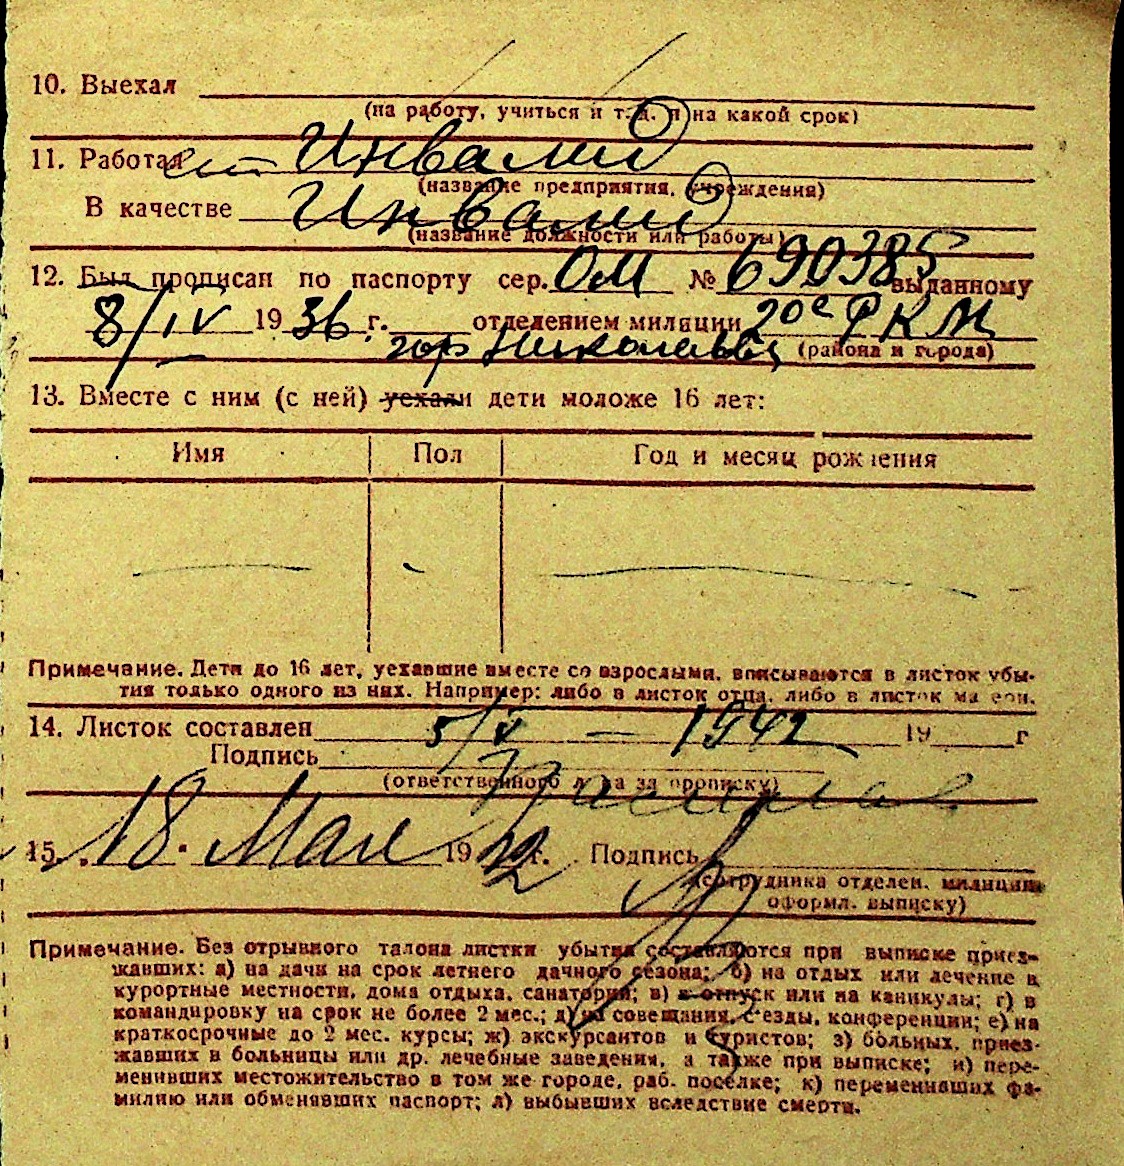 10. Выехал
(на работу, учиться и т. д. и на какой срок)
11. Работал ет Инвалид
(название предприятия, учреждения)
В качестве Инвалид
(название должности или работы)
12. Был прописан по паспорту сер. ОМ № 690385 выданному
8/IV 19 36 г. отделением милиции 20е РКМ
гор Николаевъ (района и города)
13. Вместе с ним (с ней) уехали дети моложе 16 лет:
Имя Пол Год и месяц рождения
Примечание. Дети до 16 лет, уехавшие вместе со взрослыми, вписываются в листок убы-
тия только одного из них. Например: либо в листок отца, либо в листок матери.
14. Листок составлен 5/V — 1942 19 г
Подпись
(ответственного лица за прописку)
15. 18. Мая 19 42 г. Подпись
(сотрудника отделен. милиции,
оформл. выписку)
Примечание. Без отрывного талона листки убытия составляются при выписке приез-
жавших: а) на дачи на срок летнего дачного сезона; б) на отдых или лечение в
курортные местности, дома отдыха, санатории; в) в отпуск или на каникулы; г) в
командировку на срок не более 2 мес.; д) на совещания, с'езды, конференции; е) на
краткосрочные до 2 мес. курсы; ж) экскурсантов и туристов; з) больных, приез-
жавших в больницы или др. лечебные заведения, а также при выписке; и) пере-
менивших местожительство в том же городе, раб. поселке; к) переменивших фа-
милию или обменявших паспорт; л) выбывших вследствие смерти.